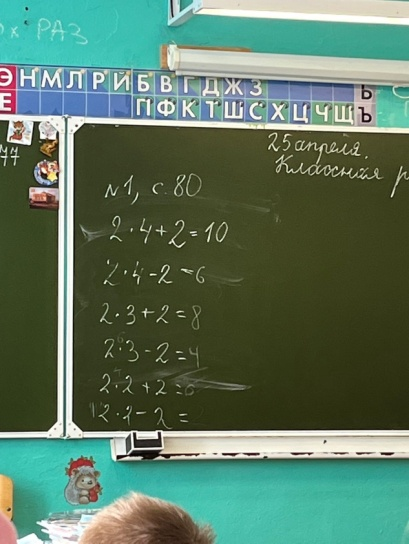 РАЗ
Э Н М Л Р Й Б В Г Д Ж З Ь
Е П Ф К Т Ш С Х Ц Ч Щ Ъ
77
25 апреля.
Классная р
№1, с. 80
2·4+2=10
2·4-2=6
2·3+2=8
2·3-2=4
2·2+2=6
2·2-2=